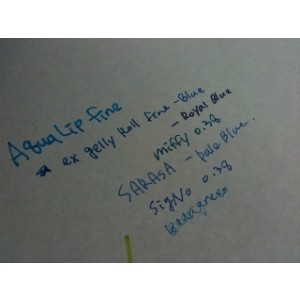 Aqualip fine
ex gelly Roll fine - Blue
- Royal Blue
miffy 0.38
SARASA - pale Blue.
SigNo 0.38